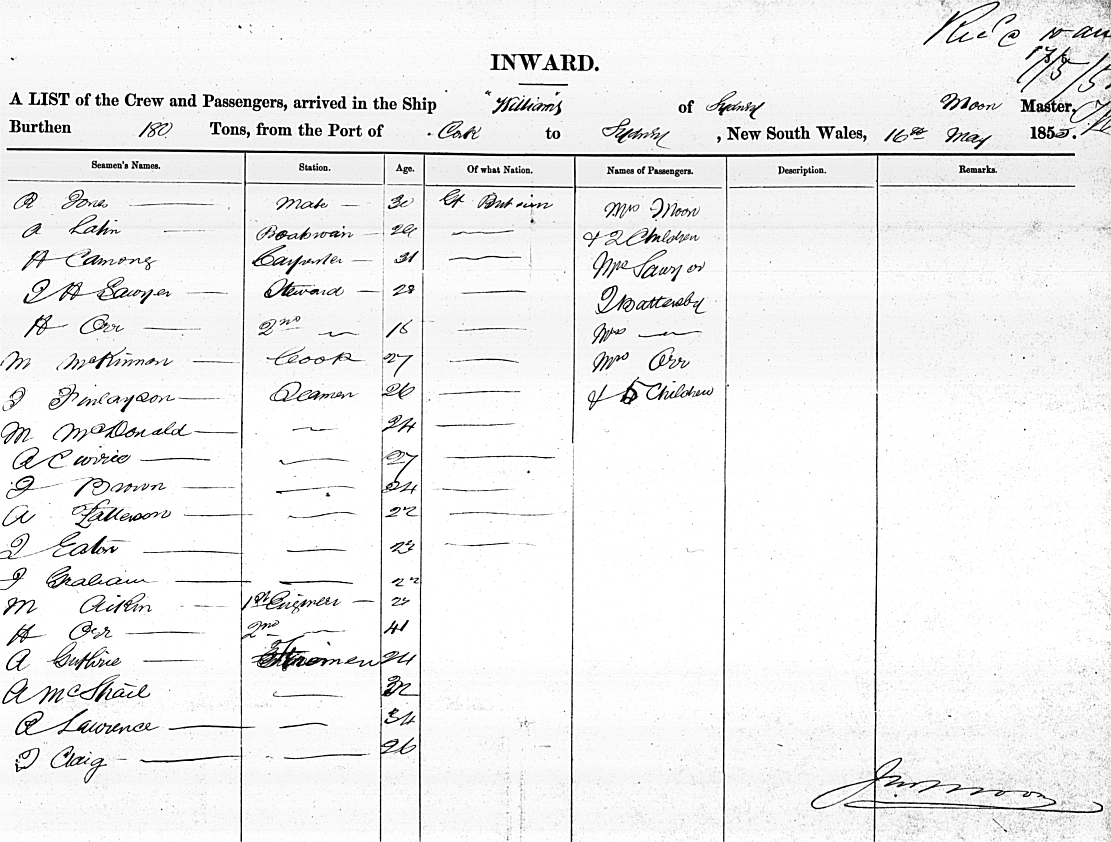 Rec'd
17/5/5
INWARD.
A LIST of the Crew and Passengers, arrived in the Ship "Williams" of Sydney Moon Master,
Burthen 180 Tons, from the Port of Cork to Sydney, New South Wales, 16th May 185
Seamen's Names. Station. Age. Of what Nation. Names of Passengers. Description. Remarks.
R Jones — Mate — 30 Gt Britain Mrs Moon
A — 29 — & 2 Children
H — Carpenter — 31 — Mrs Sawyer
J H Sawyer — Steward — 28 — J Battersby
H Orr — 2nd — 16 — Mrs —
M McKinnon — Cook 27 — Mrs Orr
J Finlayson — Seamen 26 — & 5 Children
M McDonald — — 24 —
A Currie — — 27 —
J Brown — — 24 —
A Patterson — — 22 —
J Eaton — — 22 —
J Graham — — 22
M Aitkin — 1st Engineer — 28
H Orr — 2nd — 41
A Guthrie — Firemen 24
A McPhail — 32
R Lawrence — — 34
J Craig — — 26
Jn Moon